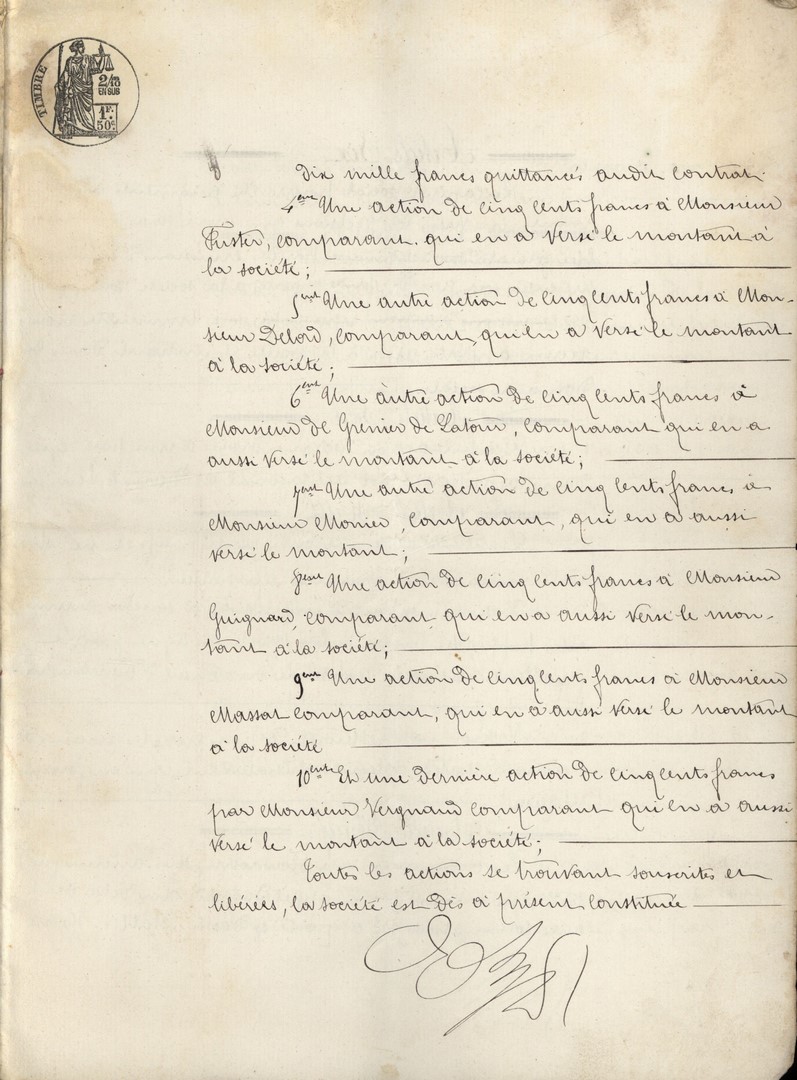 TIMBRE
2/10
EN SUS
1F.
50c.
dix mille francs quittancés audit contrat.
4eme Une action de cinq cents francs à Monsieur
Fuster, comparant, qui en a versé le montant à
la société ;
5eme Une autre action de cinq cents francs à Mon-
sieur Delord, comparant, qui en a versé le montant
à la société ;
6eme Une autre action de cinq cents francs à
Monsieur de Grenier de Latour, comparant qui en a
aussi versé le montant à la société ;
7eme Une autre action de cinq cents francs à
Monsieur Monier, comparant, qui en a aussi
versé le montant ;
8eme Une action de cinq cents francs à Monsieur
Guignard, comparant qui en a aussi versé le mon-
tant à la société ;
9eme Une action de cinq cents francs à Monsieur
Massat comparant, qui en a aussi versé le montant
à la société
10eme Et une dernière action de cinq cents francs
par Monsieur Vergnaud comparant qui en a aussi
versé le montant à la société ;
Toutes les actions se trouvant souscrites et
libérées, la société est dès à présent constituée